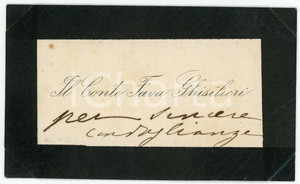 Il Conte Fava Ghisilieri
per sincere
condoglianze